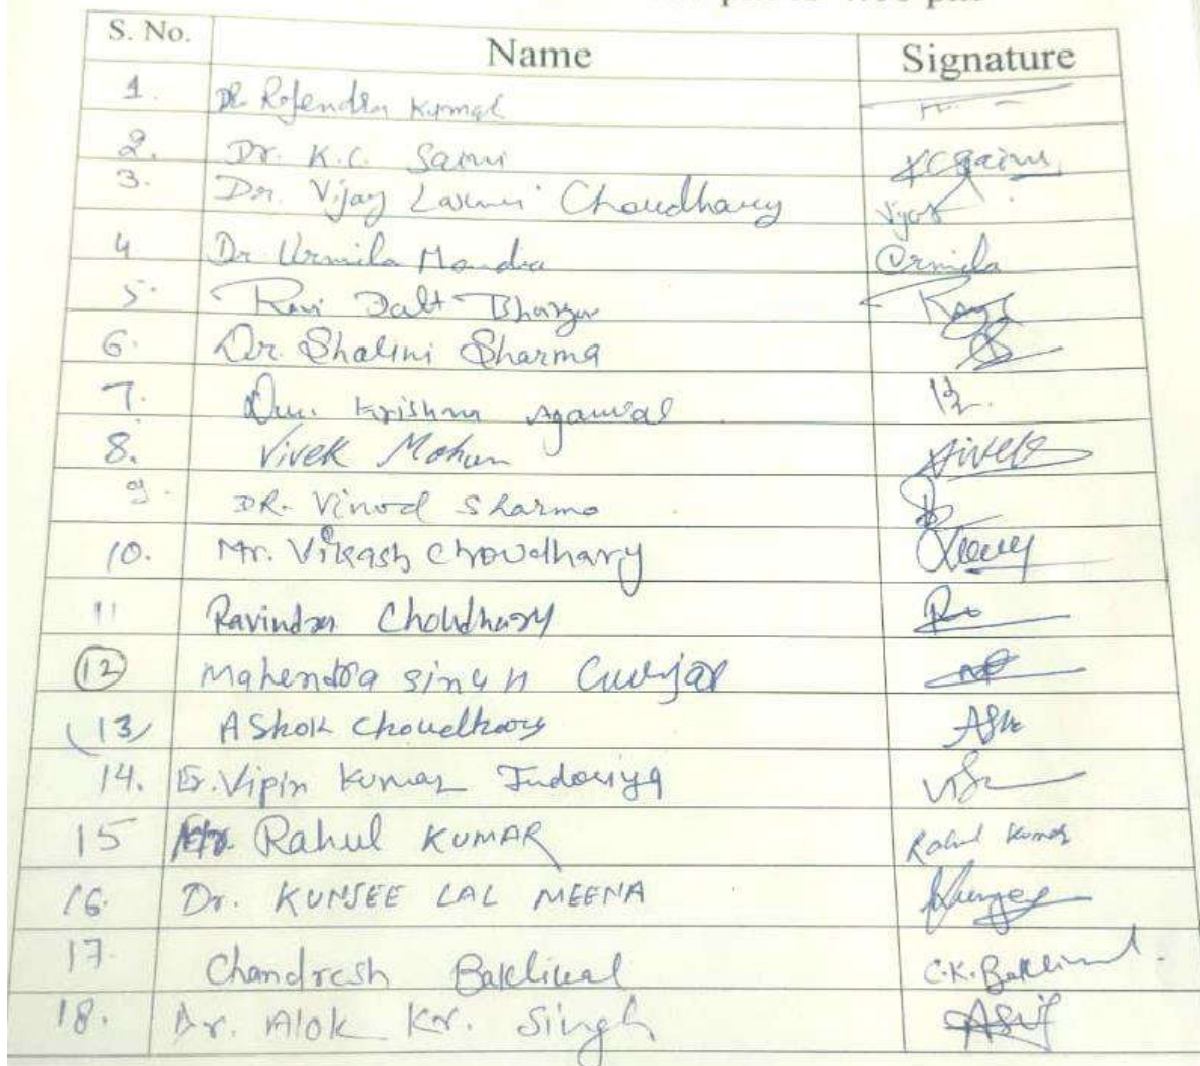 S. No. Name Signature
1. Dr Rajendra Kumar
2. Dr. K.C. Saini KCSaini
3. Dr. Vijay Laxmi Choudhary
4 Dr Urmila Urmila
5. Ravi Dutt Bhargav
6. Dr. Shalini Sharma
7. Krishna Agarwal
8. Vivek Mohan Vivek
9. DR. Vinod Sharma
10. Mr. Vikash Chowdhary
11 Ravindra Choudhary
12 Mahendra Singh Gurjar
(13) Ashok Choudhary ASh
14. Er. Vipin Kumar Indoriya
15 Rahul KUMAR Rahul Kumar
16. Dr. KUNJEE LAL MEENA Kunjee
17. Chandresh Bakliwal C.K. Bakliwal
18. Dr. Alok Kr. Singh